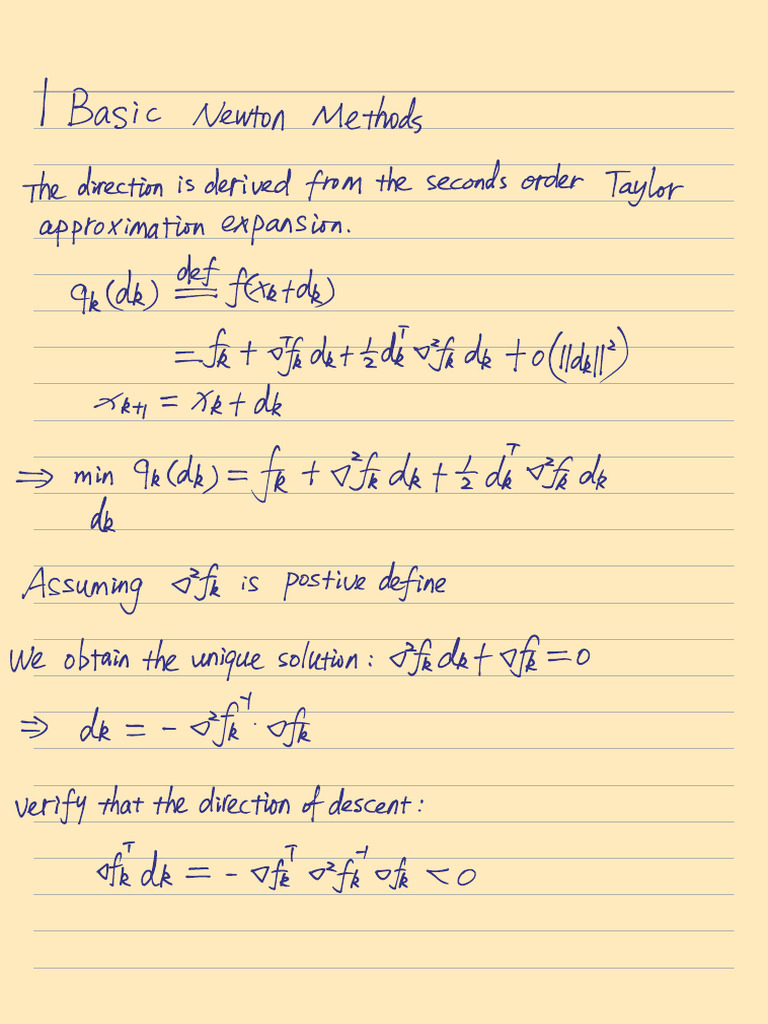 1 Basic Newton Methods
The direction is derived from the seconds order Taylor
approximation expansion.
qₖ(dₖ) def= f(xₖ+dₖ)
= fₖ + ∇ᵀfₖ dₖ + ½ dₖᵀ ∇²fₖ dₖ + o(||dₖ||²)
xₖ₊₁ = xₖ + dₖ
⇒ min qₖ(dₖ) = fₖ + ∇²fₖ dₖ + ½ dₖᵀ ∇²fₖ dₖ
dₖ
Assuming ∇²fₖ is postive define
We obtain the unique solution: ∇²fₖ dₖ + ∇fₖ = 0
⇒ dₖ = - ∇²fₖ⁻¹ · ∇fₖ
verify that the direction of descent:
∇fₖᵀ dₖ = - ∇fₖᵀ ∇²fₖ⁻¹ ∇fₖ < 0